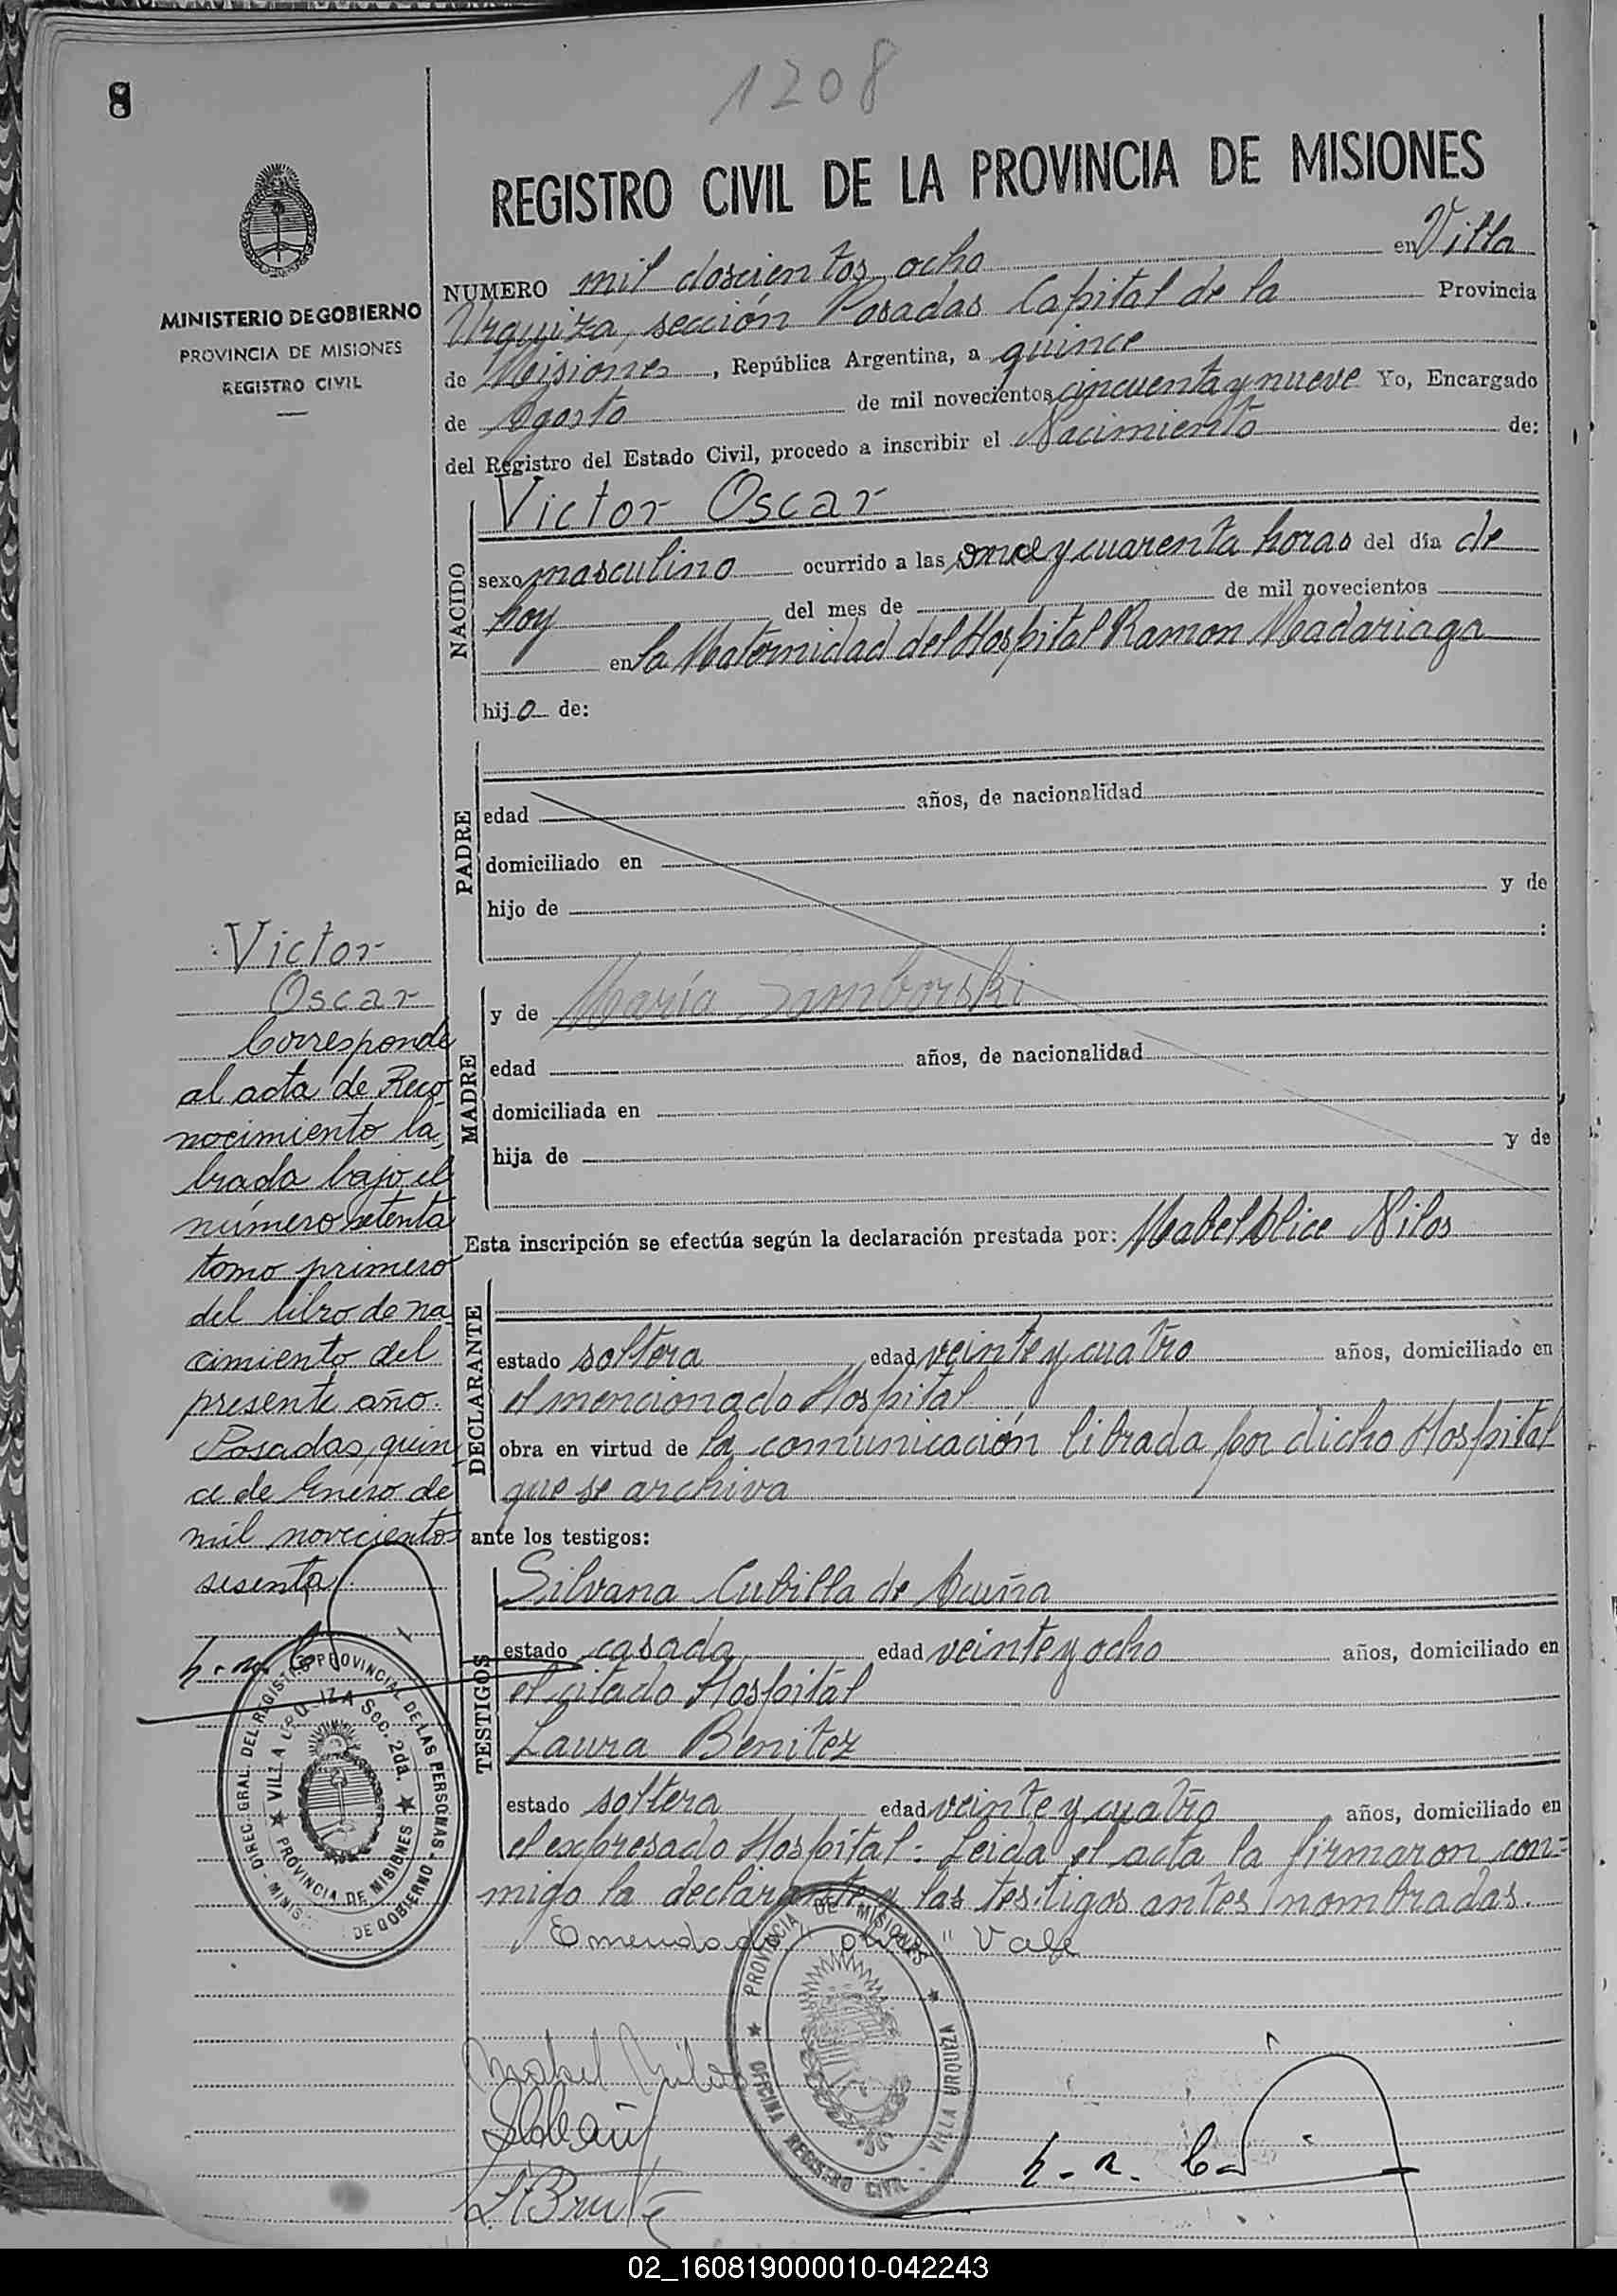 8
1208
REGISTRO CIVIL DE LA PROVINCIA DE MISIONES
MINISTERIO DE GOBIERNO
PROVINCIA DE MISIONES
REGISTRO CIVIL
NUMERO mil doscientos ocho en Villa
Urquiza, sección Posadas Capital de la Provincia
de Misiones, República Argentina, a quince
de Agosto de mil novecientos cincuenta y nueve Yo, Encargado
del Registro del Estado Civil, procedo a inscribir el Nacimiento de:
NACIDO
Victor Oscar
sexo masculino ocurrido a las once y cuarenta horas del día de
hoy del mes de de mil novecientos
en la Maternidad del Hospital Ramon Madariaga
hijo de:
PADRE
edad años, de nacionalidad
domiciliado en
hijo de y de
:
MADRE
y de María Samborski
edad años, de nacionalidad
domiciliada en
hija de y de
Esta inscripción se efectúa según la declaración prestada por: Mabel Alice Nilos
DECLARANTE
estado soltera edad veinte y cuatro años, domiciliado en
el mencionado Hospital
obra en virtud de la comunicación librada por dicho Hospital
que se archiva
ante los testigos:
TESTIGOS
Silvana Cubilla de Acuña
estado casada edad veinte y ocho años, domiciliado en
el citado Hospital
Laura Benitez
estado soltera edad veinte y cuatro años, domiciliado en
el expresado Hospital: Leida el acta la firmaron con=
migo la declarante y las testigos antes nombradas.
Emendado Vale
Victor
Oscar
Corresponde
al acta de Reco-
nocimiento la-
brada bajo el
número setenta
tomo primero
del libro de na-
cimiento del
presente año.
Posadas, quin-
ce de Enero de
mil novecientos
sesenta.
DIREC. GRAL. DEL REGISTRO PROVINCIAL DE LAS PERSONAS - MINIS. DE GOBIERNO
VILLA URQUIZA Sec. 2da.
PROVINCIA DE MISIONES
PROVINCIA DE MISIONES
OFICINA REGISTRO CIVIL - VILLA URQUIZA
Mabel Nilos
02_160819000010-042243